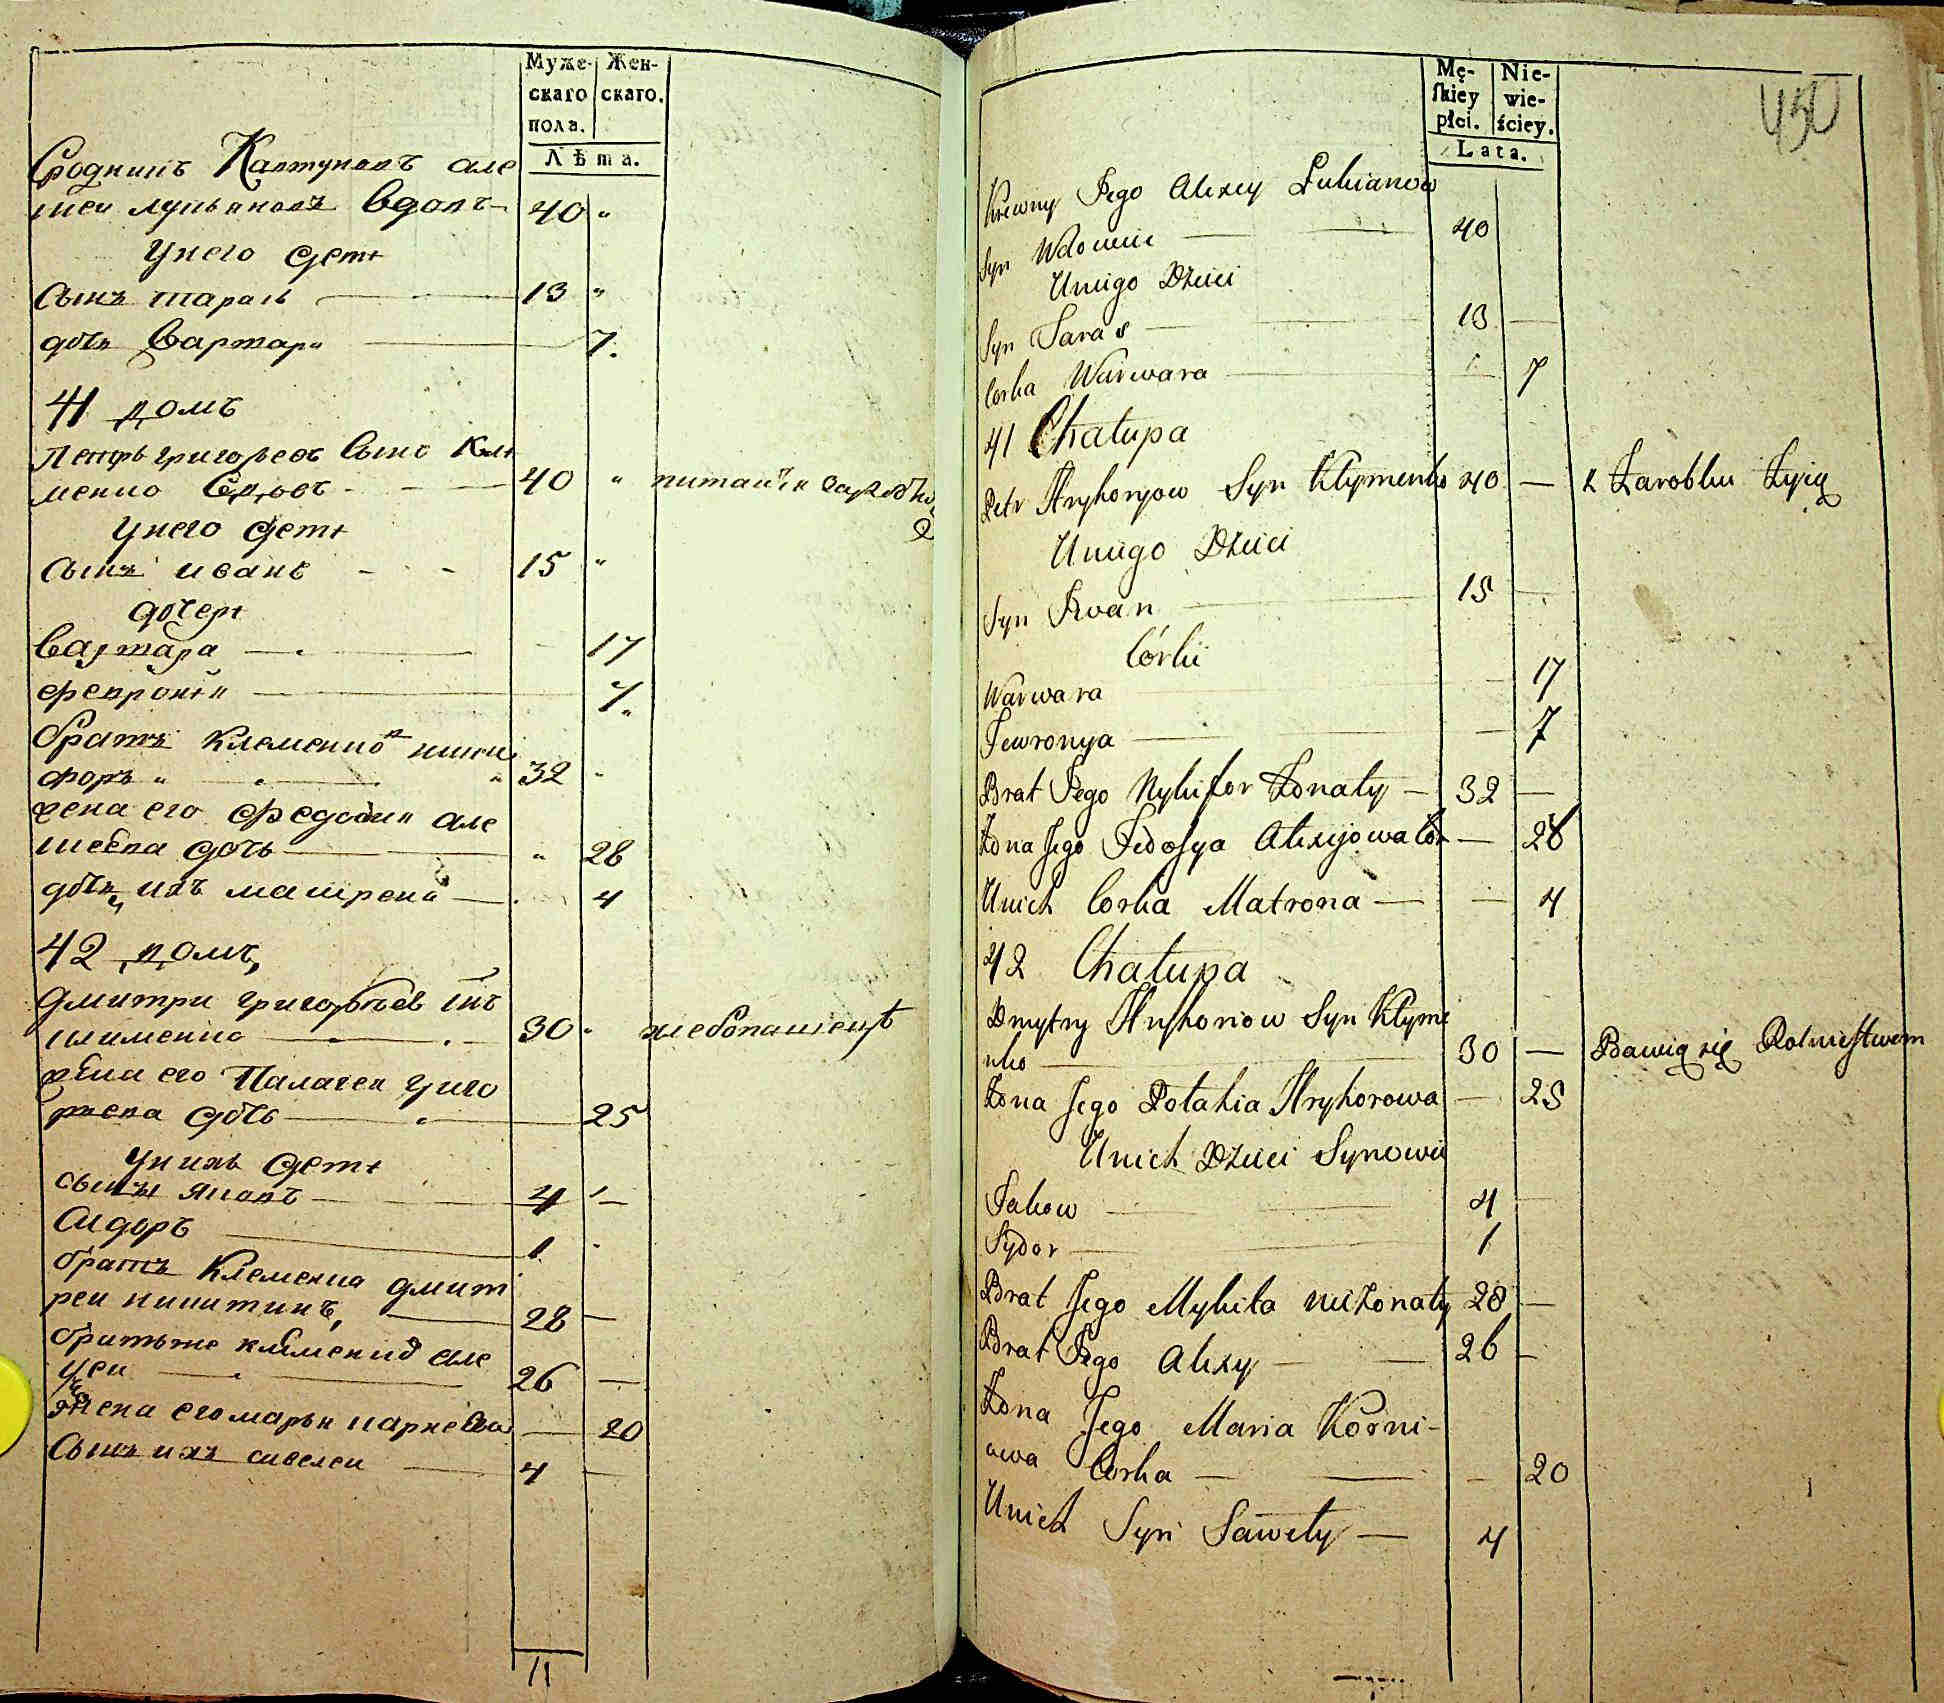 Муже- Жен-
скаго скаго.
пола.
Лѣта.
Сродникъ Калтуновъ але
ксей лукьяновъ вдовъ 40 "
У него дети
Сынъ тарасъ 13 "
дочь Варвара 7.
41 домъ
Петръ григорьевъ Сынъ Кли
менко вдовъ 40 "
У него дети
Сынъ иванъ 15 "
дочери
Варвара 17
феврония 7
братъ Клеменко ники
форъ 32
жена его федосия але
ксеева дочь " 28
дочь ихъ матрена 4
42 домъ
дмитри григорьевъ
клименко 30 " хлебопашенство
жена его Палагея григо
рьева дочь 25
У нихъ дети
сынъ яковъ 4
Сидоръ 1
братъ Клеменка дмит
реи никитинъ 28
братъ же клименко але
ксеи 26
жена его марья карнеева 20
Сынъ ихъ савелеи 4
11
Mę- Nie-
ſkiey wie-
płci. ściey.
Lata.
450
Krewny Jego Alexey Lukianow
Syn Wdowiec 40
U niego Dzieci
Syn Taras 13
Corka Warwara 7
41 Chałupa
Petr Hryhoryow Syn Kłymenko 40 z Zarobku Żyią
U niego Dzieci
Syn Iwan 15
Córki
Warwara 17
Fewronya 7
Brat Jego Nykifor Żonaty 32
Żona Jego Fedosya Alexijowa Cór 28
U nich Corka Matrona 4
42 Chałupa
Dmytry Hryhoriow Syn Kłyme
nko 30 Bawią się Rolnictwem
Żona Jego Połahia Hryhorowa 25
U nich Dzieci Synowie
Jakow 4
Sydor 1
Brat Jego Mykita nieżonaty 28
Brat Jego Alexy 26
Żona Jego Maria Korni-
owa Corka 20
U nich Syn Sawely 4